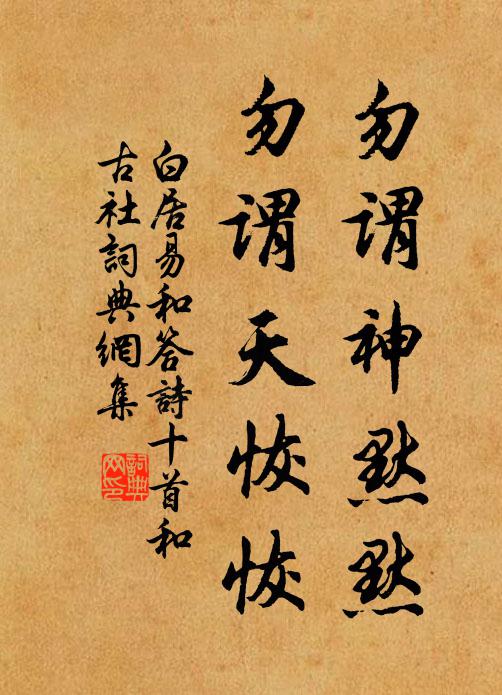 勿謂神黙黙
勿謂天恢恢
白居易和答詩十首和
古社詞典網集
詞典网印